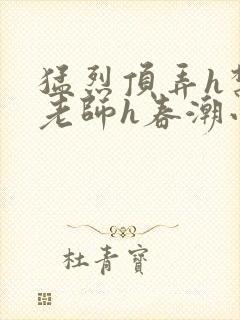 猛烈頂弄h
老師h春潮
杜青寶